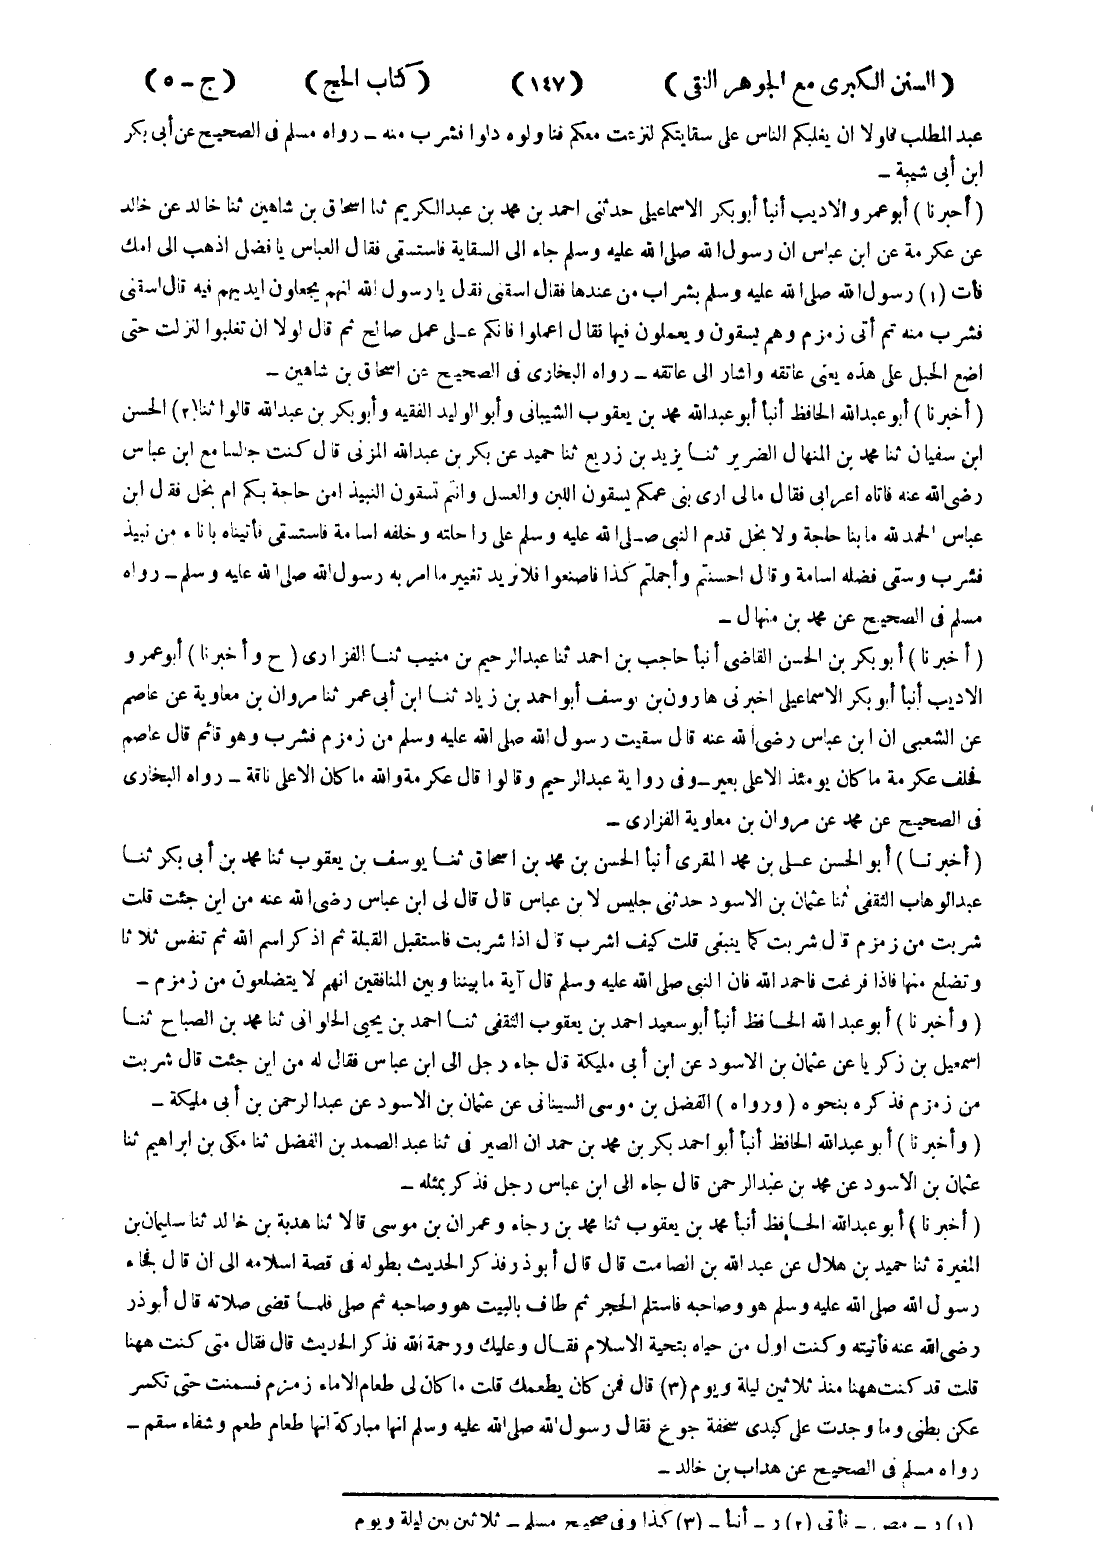 ( السنن الكبرى مع الجوهر النقى ) (١٤٧) ( كتاب الحج ) ( ج ـ ٥ )
عبد المطلب فلولا ان يغلبكم الناس على سقايتكم لنزعت معكم فناولوه دلوا فشرب منه ـ رواه مسلم فى الصحيح عن أبى بكر
ابن أبى شيبة ـ
( أخبرنا ) أبو عمرو الاديب أنبأ أبو بكر الاسماعيلى حدثنى احمد بن محمد بن عبد الكريم ثنا اسحاق بن شاهين ثنا خالد عن خالد
عن عكرمة عن ابن عباس ان رسول الله صلى الله عليه وسلم جاء الى السقاية فاستسقى فقال العباس يا فضل اذهب الى امك
فأت (١) رسول الله صلى الله عليه وسلم بشراب من عندها فقال اسقنى فقال يا رسول الله انهم يجعلون ايديهم فيه قال اسقنى
فشرب منه ثم أتى زمزم وهم يسقون ويعملون فيها فقال اعملوا فانكم على عمل صالح ثم قال لولا ان تغلبوا لنزلت حتى
اضع الحبل على هذه يعنى عاتقه واشار الى عاتقه ـ رواه البخارى فى الصحيح عن اسحاق بن شاهين ـ
( أخبرنا ) أبو عبد الله الحافظ أنبأ أبو عبد الله محمد بن يعقوب الشيبانى وأبو الوليد الفقيه وأبو بكر بن عبد الله قالوا ثنا (٢) الحسن
ابن سفيان ثنا محمد بن المنهال الضرير ثنا يزيد بن زريع ثنا حميد عن بكر بن عبد الله المزنى قال كنت جالسا مع ابن عباس
رضى الله عنه فاتاه اعرابى فقال مالى ارى بنى عمكم يسقون اللبن والعسل وانتم تسقون النبيذ امن حاجة بكم ام بخل فقال ابن
عباس الحمد لله ما بنا حاجة ولا بخل قدم النبى صلى الله عليه وسلم على راحلته وخلفه اسامة فاستسقى فأتيناه باناء من نبيذ
فشرب وسقى فضله اسامة وقال احسنتم وأجملتم كذا فاصنعوا فلا نريد تغيير ما امر به رسول الله صلى الله عليه وسلم ـ رواه
مسلم فى الصحيح عن محمد بن منهال ـ
( أخبرنا ) أبو بكر بن الحسن القاضى أنبأ حاجب بن احمد ثنا عبد الرحيم بن منيب ثنا الفزارى ( ح وأخبرنا ) أبو عمرو
الاديب أنبأ أبو بكر الاسماعيلى اخبرنى هارون بن يوسف أبو احمد بن زياد ثنا ابن أبى عمر ثنا مروان بن معاوية عن عاصم
عن الشعبى ان ابن عباس رضى الله عنه قال سقيت رسول الله صلى الله عليه وسلم من زمزم فشرب وهو قائم قال عاصم
فحلف عكرمة ما كان يومئذ الا على بعير ـ وفى رواية عبد الرحيم وقالوا قال عكرمة والله ما كان الا على ناقة ـ رواه البخارى
فى الصحيح عن محمد عن مروان بن معاوية الفزارى ـ
( أخبرنا ) أبو الحسن على بن محمد المقرى أنبأ الحسن بن محمد بن اسحاق ثنا يوسف بن يعقوب ثنا محمد بن أبى بكر ثنا
عبد الوهاب الثقفى ثنا عثمان بن الاسود حدثنى جليس لابن عباس قال قال لى ابن عباس رضى الله عنه من اين جئت قلت
شربت من زمزم قال شربت كما ينبغى قلت كيف اشرب قال اذا شربت فاستقبل القبلة ثم اذكر اسم الله ثم تنفس ثلاثا
وتضلع منها فاذا فرغت فاحمد الله فان النبى صلى الله عليه وسلم قال آية ما بيننا وبين المنافقين انهم لا يتضلعون من زمزم ـ
( وأخبرنا ) أبو عبد الله الحافظ أنبأ أبو سعيد احمد بن يعقوب الثقفى ثنا احمد بن يحيى الحلوانى ثنا محمد بن الصباح ثنا
اسمعيل بن زكريا عن عثمان بن الاسود عن ابن أبى مليكة قال جاء رجل الى ابن عباس فقال له من اين جئت قال شربت
من زمزم فذكره بنحوه ( ورواه ) الفضل بن موسى السينانى عن عثمان بن الاسود عن عبد الرحمن بن أبى مليكة ـ
( وأخبرنا ) أبو عبد الله الحافظ أنبأ أبو احمد بكر بن محمد بن حمدان الصيرفى ثنا عبد الصمد بن الفضل ثنا مكى بن ابراهيم ثنا
عثمان بن الاسود عن محمد بن عبد الرحمن قال جاء الى ابن عباس رجل فذكر بمثله ـ
( أخبرنا ) أبو عبد الله الحافظ أنبأ محمد بن يعقوب ثنا محمد بن رجاء وعمران بن موسى قالا ثنا هدبة بن خالد ثنا سليمان بن
المغيرة ثنا حميد بن هلال عن عبد الله بن الصامت قال قال أبو ذر فذكر الحديث بطوله فى قصة اسلامه الى ان قال فجاء
رسول الله صلى الله عليه وسلم هو وصاحبه فاستلم الحجر ثم طاف بالبيت هو وصاحبه ثم صلى فلما قضى صلاته قال أبو ذر
رضى الله عنه فأتيته وكنت اول من حياه بتحية الاسلام فقال وعليك ورحمة الله فذكر الحديث قال فقال متى كنت ههنا
قلت قد كنت ههنا منذ ثلاثين ليلة ويوم (٣) قال فمن كان يطعمك قلت ما كان لى طعام الا ماء زمزم فسمنت حتى تكسر
عكن بطنى وما وجدت على كبدى سخفة جوع فقال رسول الله صلى الله عليه وسلم انها مباركة انها طعام طعم وشفاء سقم ـ
رواه مسلم فى الصحيح عن هداب بن خالد ـ
(١) ر ـ مص ـ فأتى (٢) ر ـ أنبأ ـ (٣) كذا وفى صحيح مسلم ـ ثلاثين بين ليلة ويوم